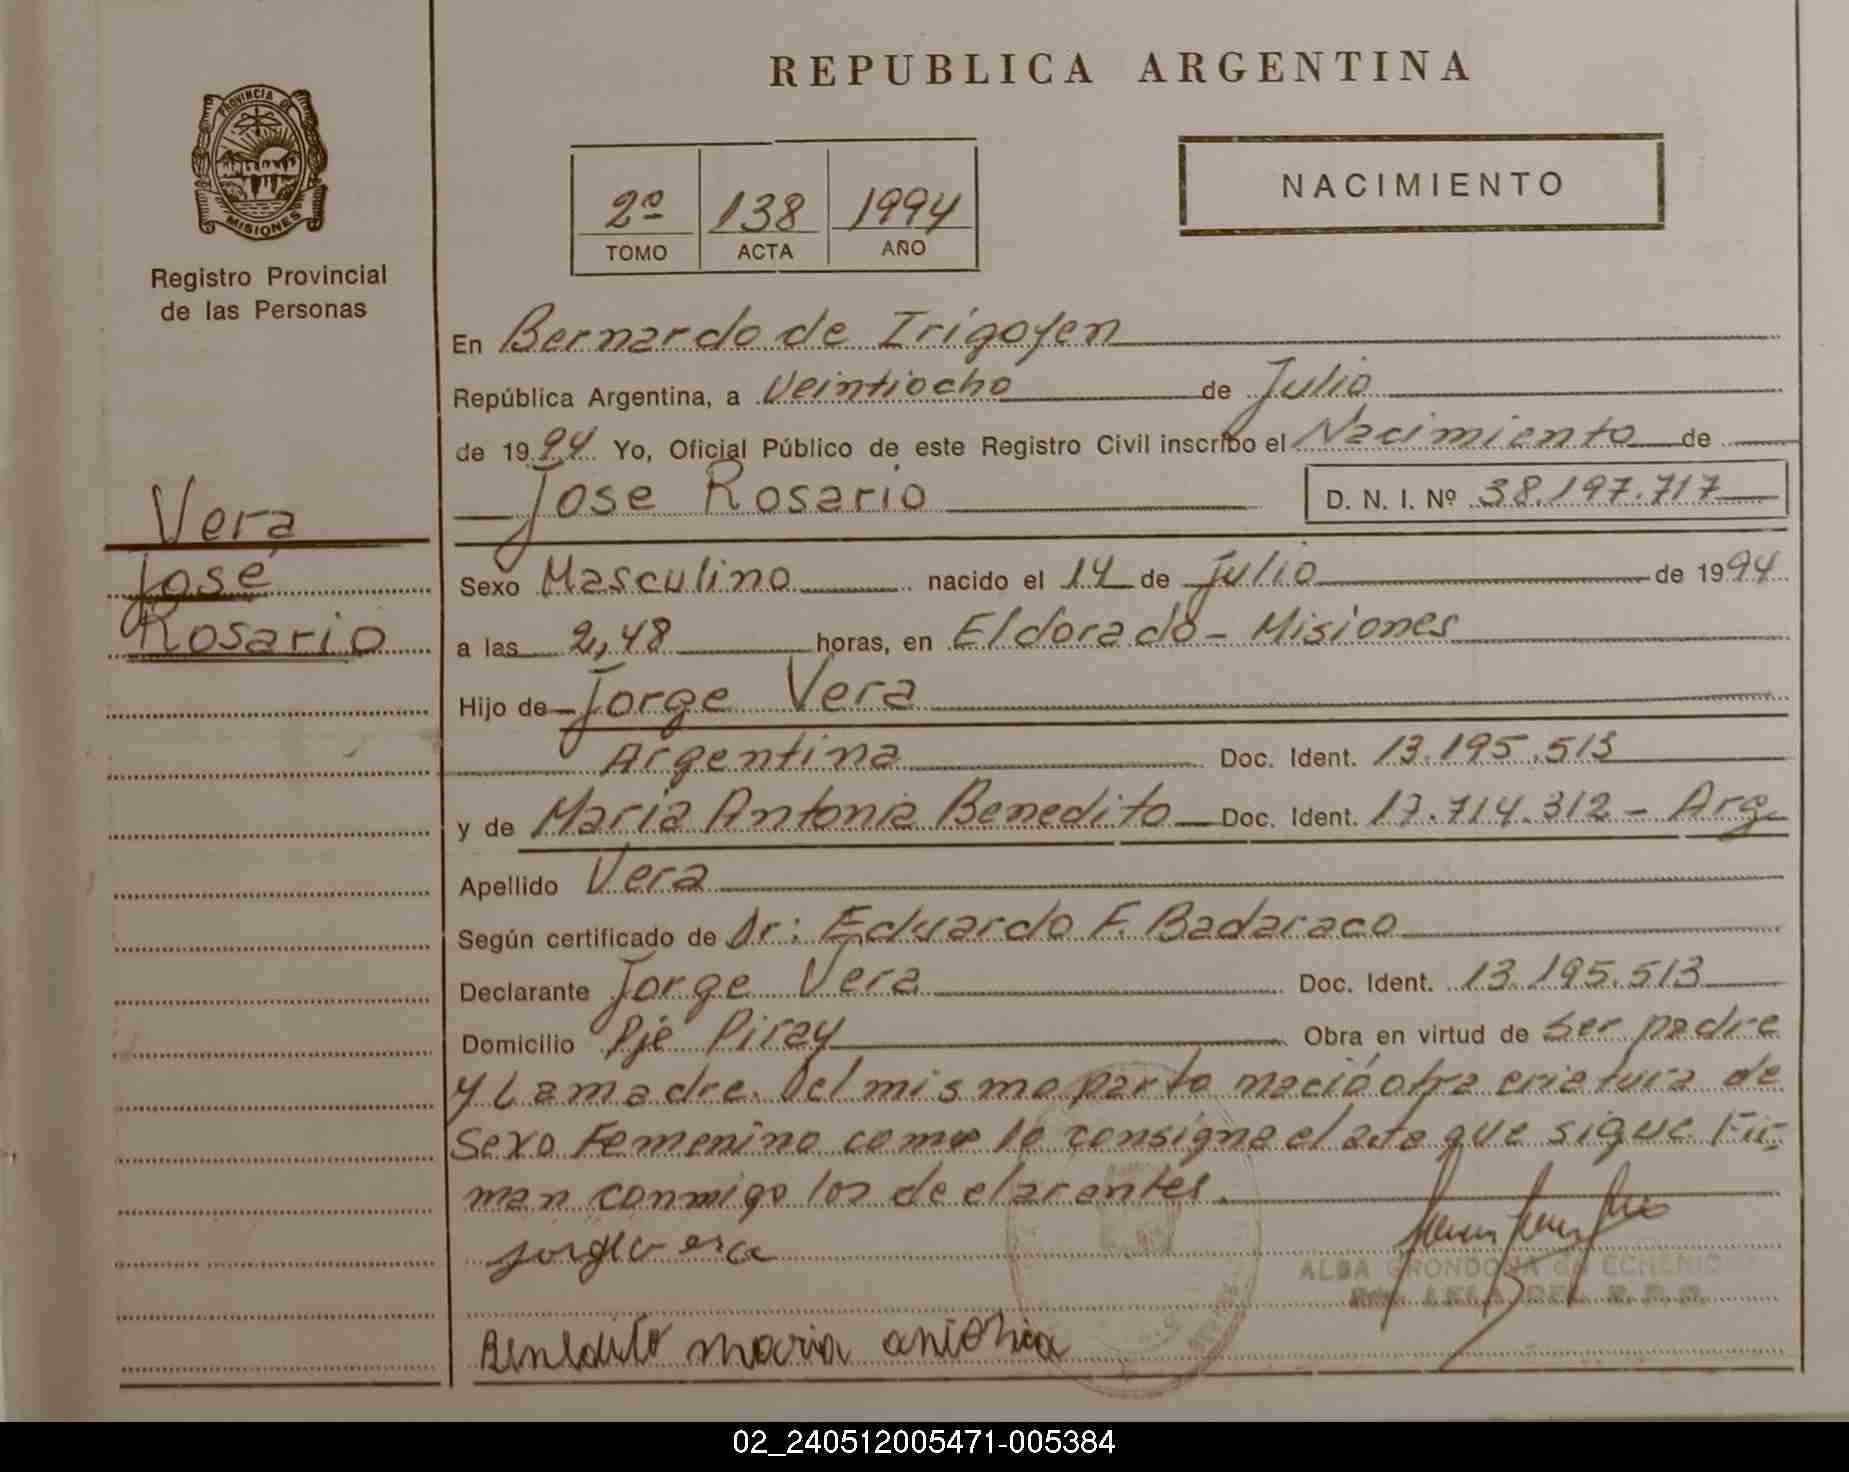 REPUBLICA ARGENTINA
PROVINCIA DE
MISIONES
Registro Provincial
de las Personas
2º 138 1994
TOMO ACTA AÑO
NACIMIENTO
Vera
José
Rosario
En Bernardo de Irigoyen
República Argentina, a Veintiocho de Julio
de 1994 Yo, Oficial Público de este Registro Civil inscribo el Nacimiento de
Jose Rosario D. N. I. Nº 38.197.717
Sexo Masculino nacido el 14 de Julio de 1994
a las 2,48 horas, en Eldorado - Misiones
Hijo de Jorge Vera
Argentina Doc. Ident. 13.195.513
y de Maria Antonia Benedito Doc. Ident. 17.714.312 - Arg.
Apellido Vera
Según certificado de Dr: Eduardo F. Badaraco
Declarante Jorge Vera Doc. Ident. 13.195.513
Domicilio Pje Piray Obra en virtud de ser padre
y La madre. Del mismo parto nació otra criatura de
sexo Femenino como lo consigna el acta que sigue. Fir-
man conmigo los declarantes.
Jorge Vera
ALBA GRONDONA de ECHENIQ
Benedito maria antonia
02_240512005471-005384